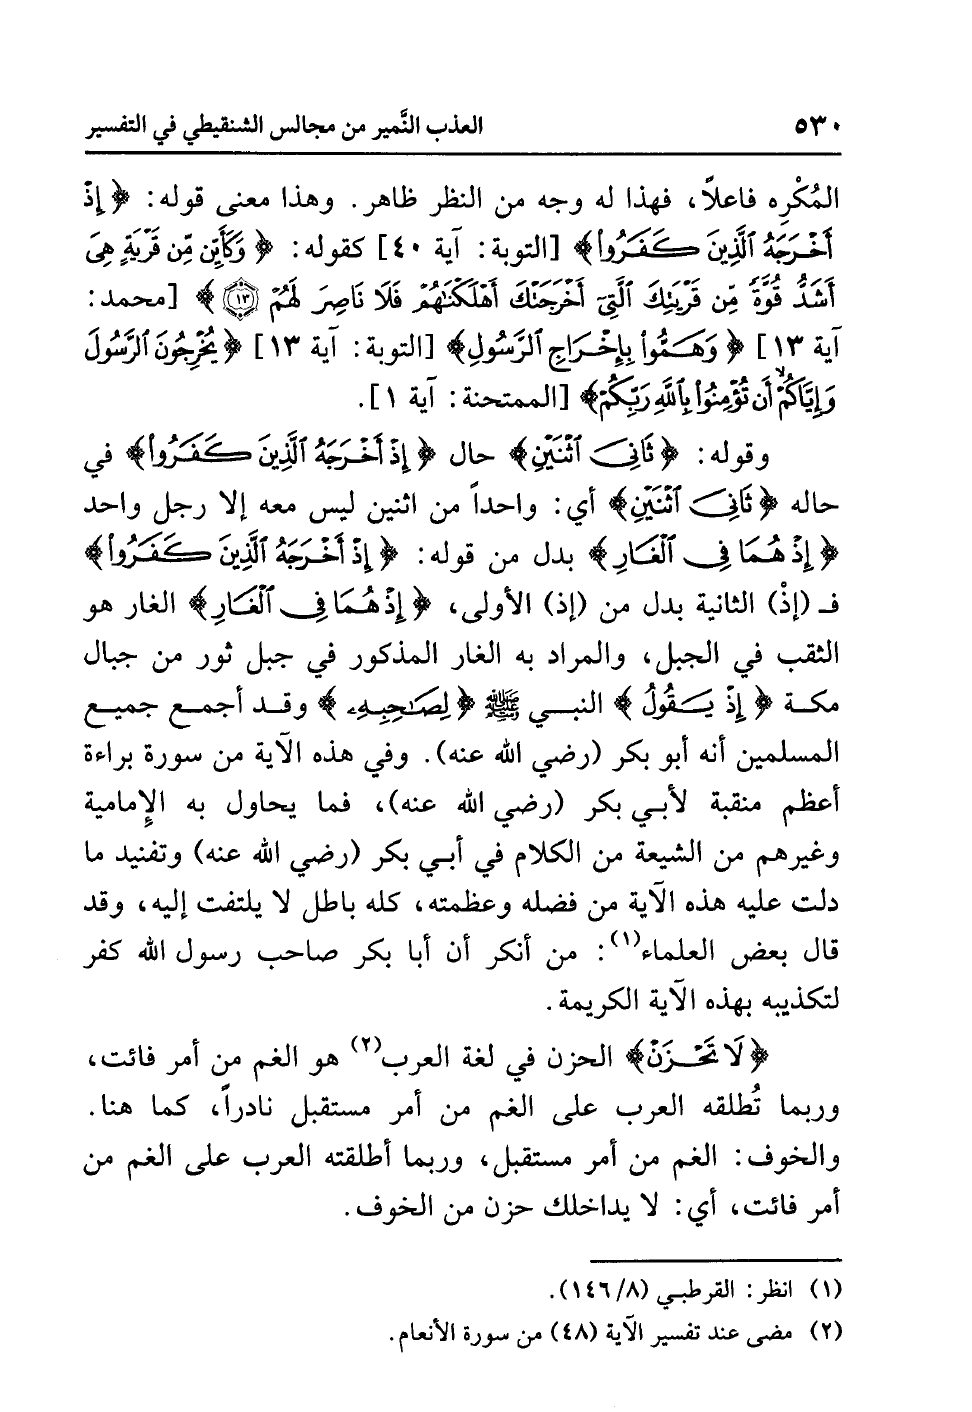 ٥٣٠ العذب النَّمير من مجالس الشنقيطي في التفسير
المُكْرِه فاعلاً، فهذا له وجه من النظر ظاهر. وهذا معنى قوله: ﴿إِذْ
أَخْرَجَهُ ٱلَّذِينَ كَفَرُوا۟﴾ [التوبة: آية ٤٠] كقوله: ﴿وَكَأَيِّن مِّن قَرْيَةٍ هِىَ
أَشَدُّ قُوَّةً مِّن قَرْيَتِكَ ٱلَّتِىٓ أَخْرَجَتْكَ أَهْلَكْنَـٰهُمْ فَلَا نَاصِرَ لَهُمْ ۝١٣﴾ [محمد:
آية ١٣] ﴿وَهَمُّوا۟ بِإِخْرَاجِ ٱلرَّسُولِ﴾ [التوبة: آية ١٣] ﴿يُخْرِجُونَ ٱلرَّسُولَ
وَإِيَّاكُمْ ۙ أَن تُؤْمِنُوا۟ بِٱللَّهِ رَبِّكُمْ﴾ [الممتحنة: آية ١].
وقوله: ﴿ثَانِىَ ٱثْنَيْنِ﴾ حال ﴿إِذْ أَخْرَجَهُ ٱلَّذِينَ كَفَرُوا۟﴾ في
حاله ﴿ثَانِىَ ٱثْنَيْنِ﴾ أي: واحداً من اثنين ليس معه إلا رجل واحد
﴿إِذْ هُمَا فِى ٱلْغَارِ﴾ بدل من قوله: ﴿إِذْ أَخْرَجَهُ ٱلَّذِينَ كَفَرُوا۟﴾
فـ (إذْ) الثانية بدل من (إذ) الأولى، ﴿إِذْ هُمَا فِى ٱلْغَارِ﴾ الغار هو
الثقب في الجبل، والمراد به الغار المذكور في جبل ثور من جبال
مكة ﴿إِذْ يَقُولُ﴾ النبي ﷺ ﴿لِصَـٰحِبِهِۦ﴾ وقد أجمع جميع
المسلمين أنه أبو بكر (رضي الله عنه). وفي هذه الآية من سورة براءة
أعظم منقبة لأبي بكر (رضي الله عنه)، فما يحاول به الإمامية
وغيرهم من الشيعة من الكلام في أبي بكر (رضي الله عنه) وتفنيد ما
دلت عليه هذه الآية من فضله وعظمته، كله باطل لا يلتفت إليه، وقد
قال بعض العلماء(١): من أنكر أن أبا بكر صاحب رسول الله كفر
لتكذيبه بهذه الآية الكريمة.
﴿لَا تَحْزَنْ﴾ الحزن في لغة العرب(٢) هو الغم من أمر فائت،
وربما تُطلقه العرب على الغم من أمر مستقبل نادراً، كما هنا.
والخوف: الغم من أمر مستقبل، وربما أطلقته العرب على الغم من
أمر فائت، أي: لا يداخلك حزن من الخوف.
(١) انظر: القرطبي (١٤٦/٨).
(٢) مضى عند تفسير الآية (٤٨) من سورة الأنعام.